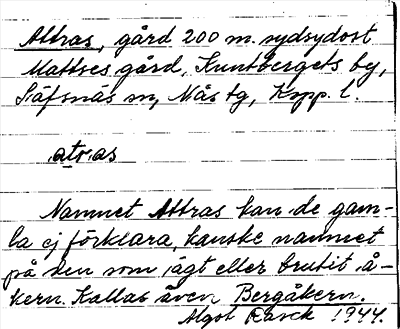 Attras, gård 200 m. sydsydost
Mattses gård, Kuntbergets by,
Säfsnäs sn, Nås tg, Kopp. l.
atras
Namnet Attras kan de gam-
la ej förklara, kanske namnet
på den som ägt eller brutit å-
kern. Kallas även Bergåkern.
Algot 1944.